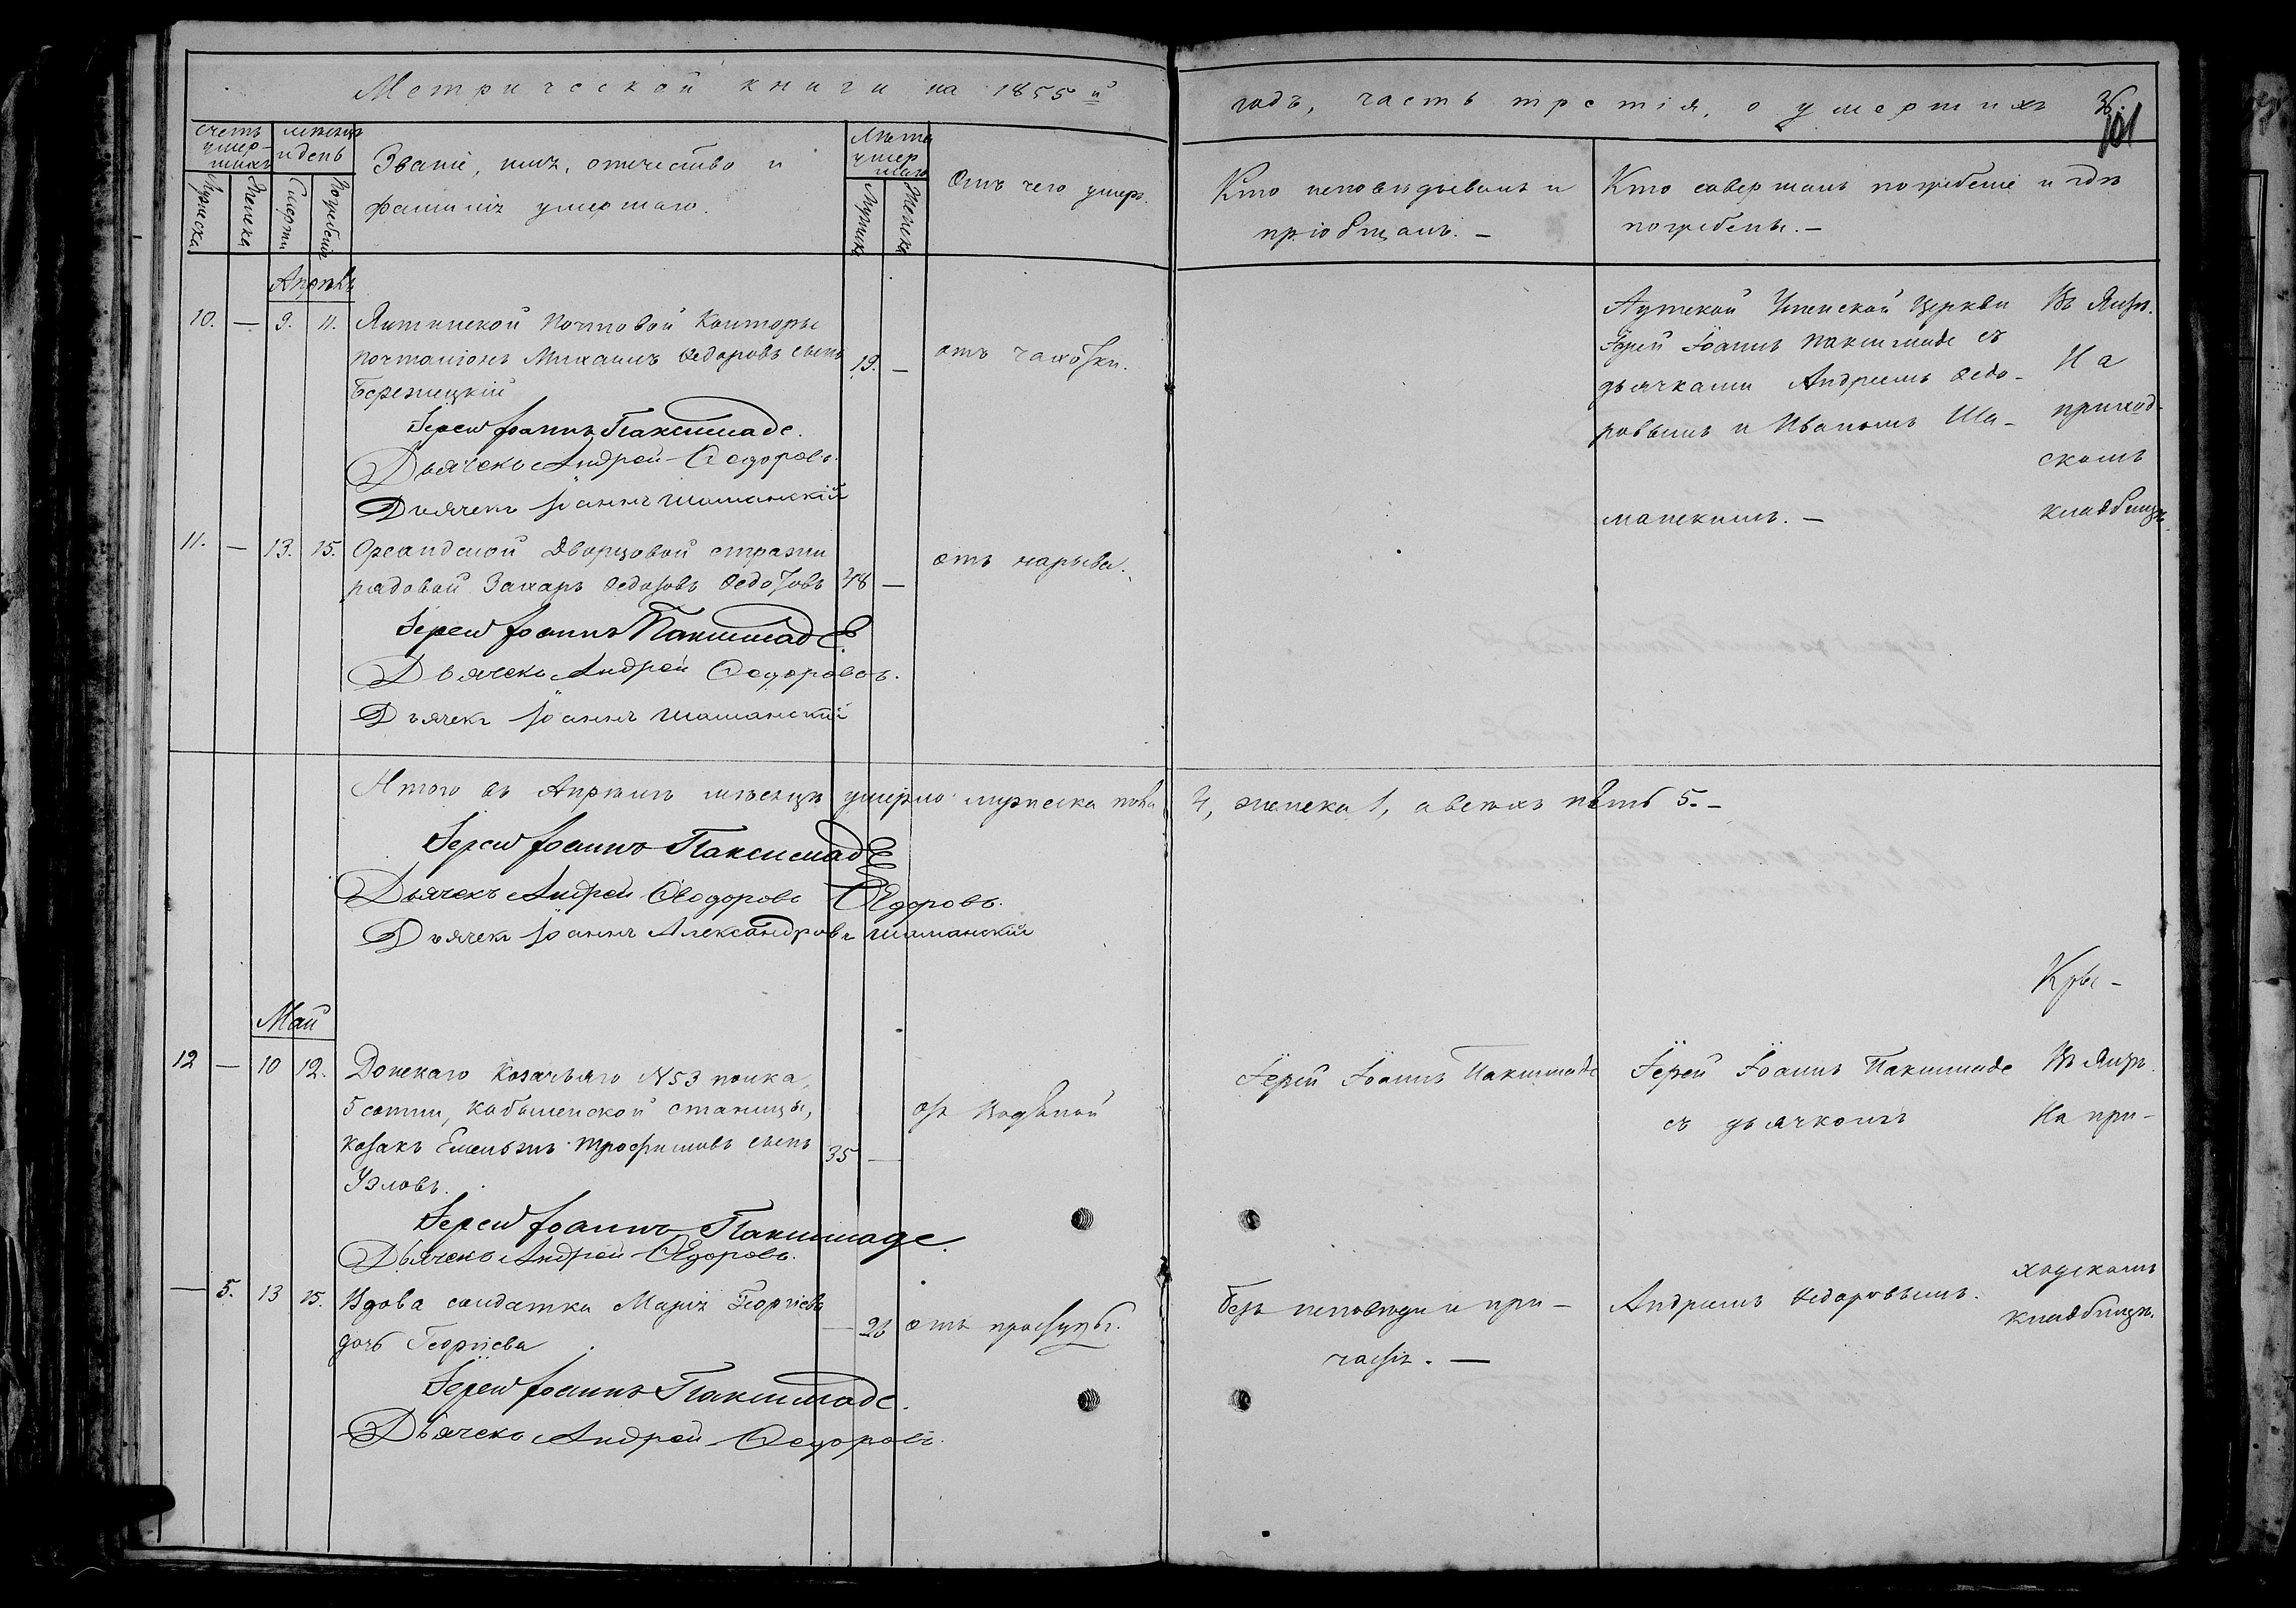 Метрической книги на 1855 й
годъ, часть третія, о умершихъ
101
Счетъ умер-
шихъ
Мужеска
Женска
мѣсяцъ
и день
Смерти
Погребенія
Званіе, имя, отечество и
фамилія умершаго.
Лѣта
умер
шаго
Мужска
Женска
Отъ чего умеръ.
Кто исповѣдывалъ и
пріобщалъ. —
Кто совершалъ погребеніе и гдѣ
погребены. —
Апрѣль
10. — 9. 11. Ялтинской Почтовой Конторы
почталіонъ Михаилъ Ѳедоровъ сынъ 19. — отъ чахотки.
Бережецкій
Іерей Іоаннъ Паксимаде.
Дьячекъ Андрей Ѳедоровъ.
Дьячекъ Іоаннъ Шаманскій
Аутской Успенской Церкви
Іерей Іоаннъ Паксимаде съ
дьячками Андреемъ Ѳедо-
ровымъ и Иваномъ Ша-
манскимъ. —
Въ Ялтѣ.
На
приход-
скомъ
кладбищѣ.
11. — 13. 15. Ореандской Дворцовой стражи
рядовой Захаръ Ѳедотовъ Ѳедотовъ 48 — отъ нарыва.
Іерей Іоаннъ Паксимаде.
Дьячекъ Андрей Ѳедоровъ.
Дьячекъ Іоаннъ Шаманскій
Итого въ Апрѣлѣ мѣсяцѣ умерло мужеска пола 4, женска 1, а всѣхъ пять 5. —
Іерей Іоаннъ Паксимаде
Дьячекъ Андрей Ѳеодоровъ Ѳедоровъ.
Дьячекъ Іоаннъ Александровъ Шаманскій
Май
12 — 10 12. Донскаго Козачьяго N53 полка,
5 сотни, Кобылянской станицы,
козакъ Емельянъ Трофимовъ сынъ 35 — отъ Водяной
Узловъ.
Іерей Іоаннъ Паксимаде.
Дьячекъ Андрей Ѳедоровъ.
Іерей Іоаннъ Паксимаде
Іерей Іоаннъ Паксимаде
съ дьячкомъ
Въ Ялтѣ.
На при-
— 5. 13 15. Вдова солдатка Марія Георгіева
дочь Георгіева — 26 отъ простуды.
Іерей Іоаннъ Паксимаде.
Дьячекъ Андрей Ѳедоровъ.
безъ исповѣди и при-
частія. —
Андреемъ Ѳедоровымъ.
ходскомъ
кладбищѣ.